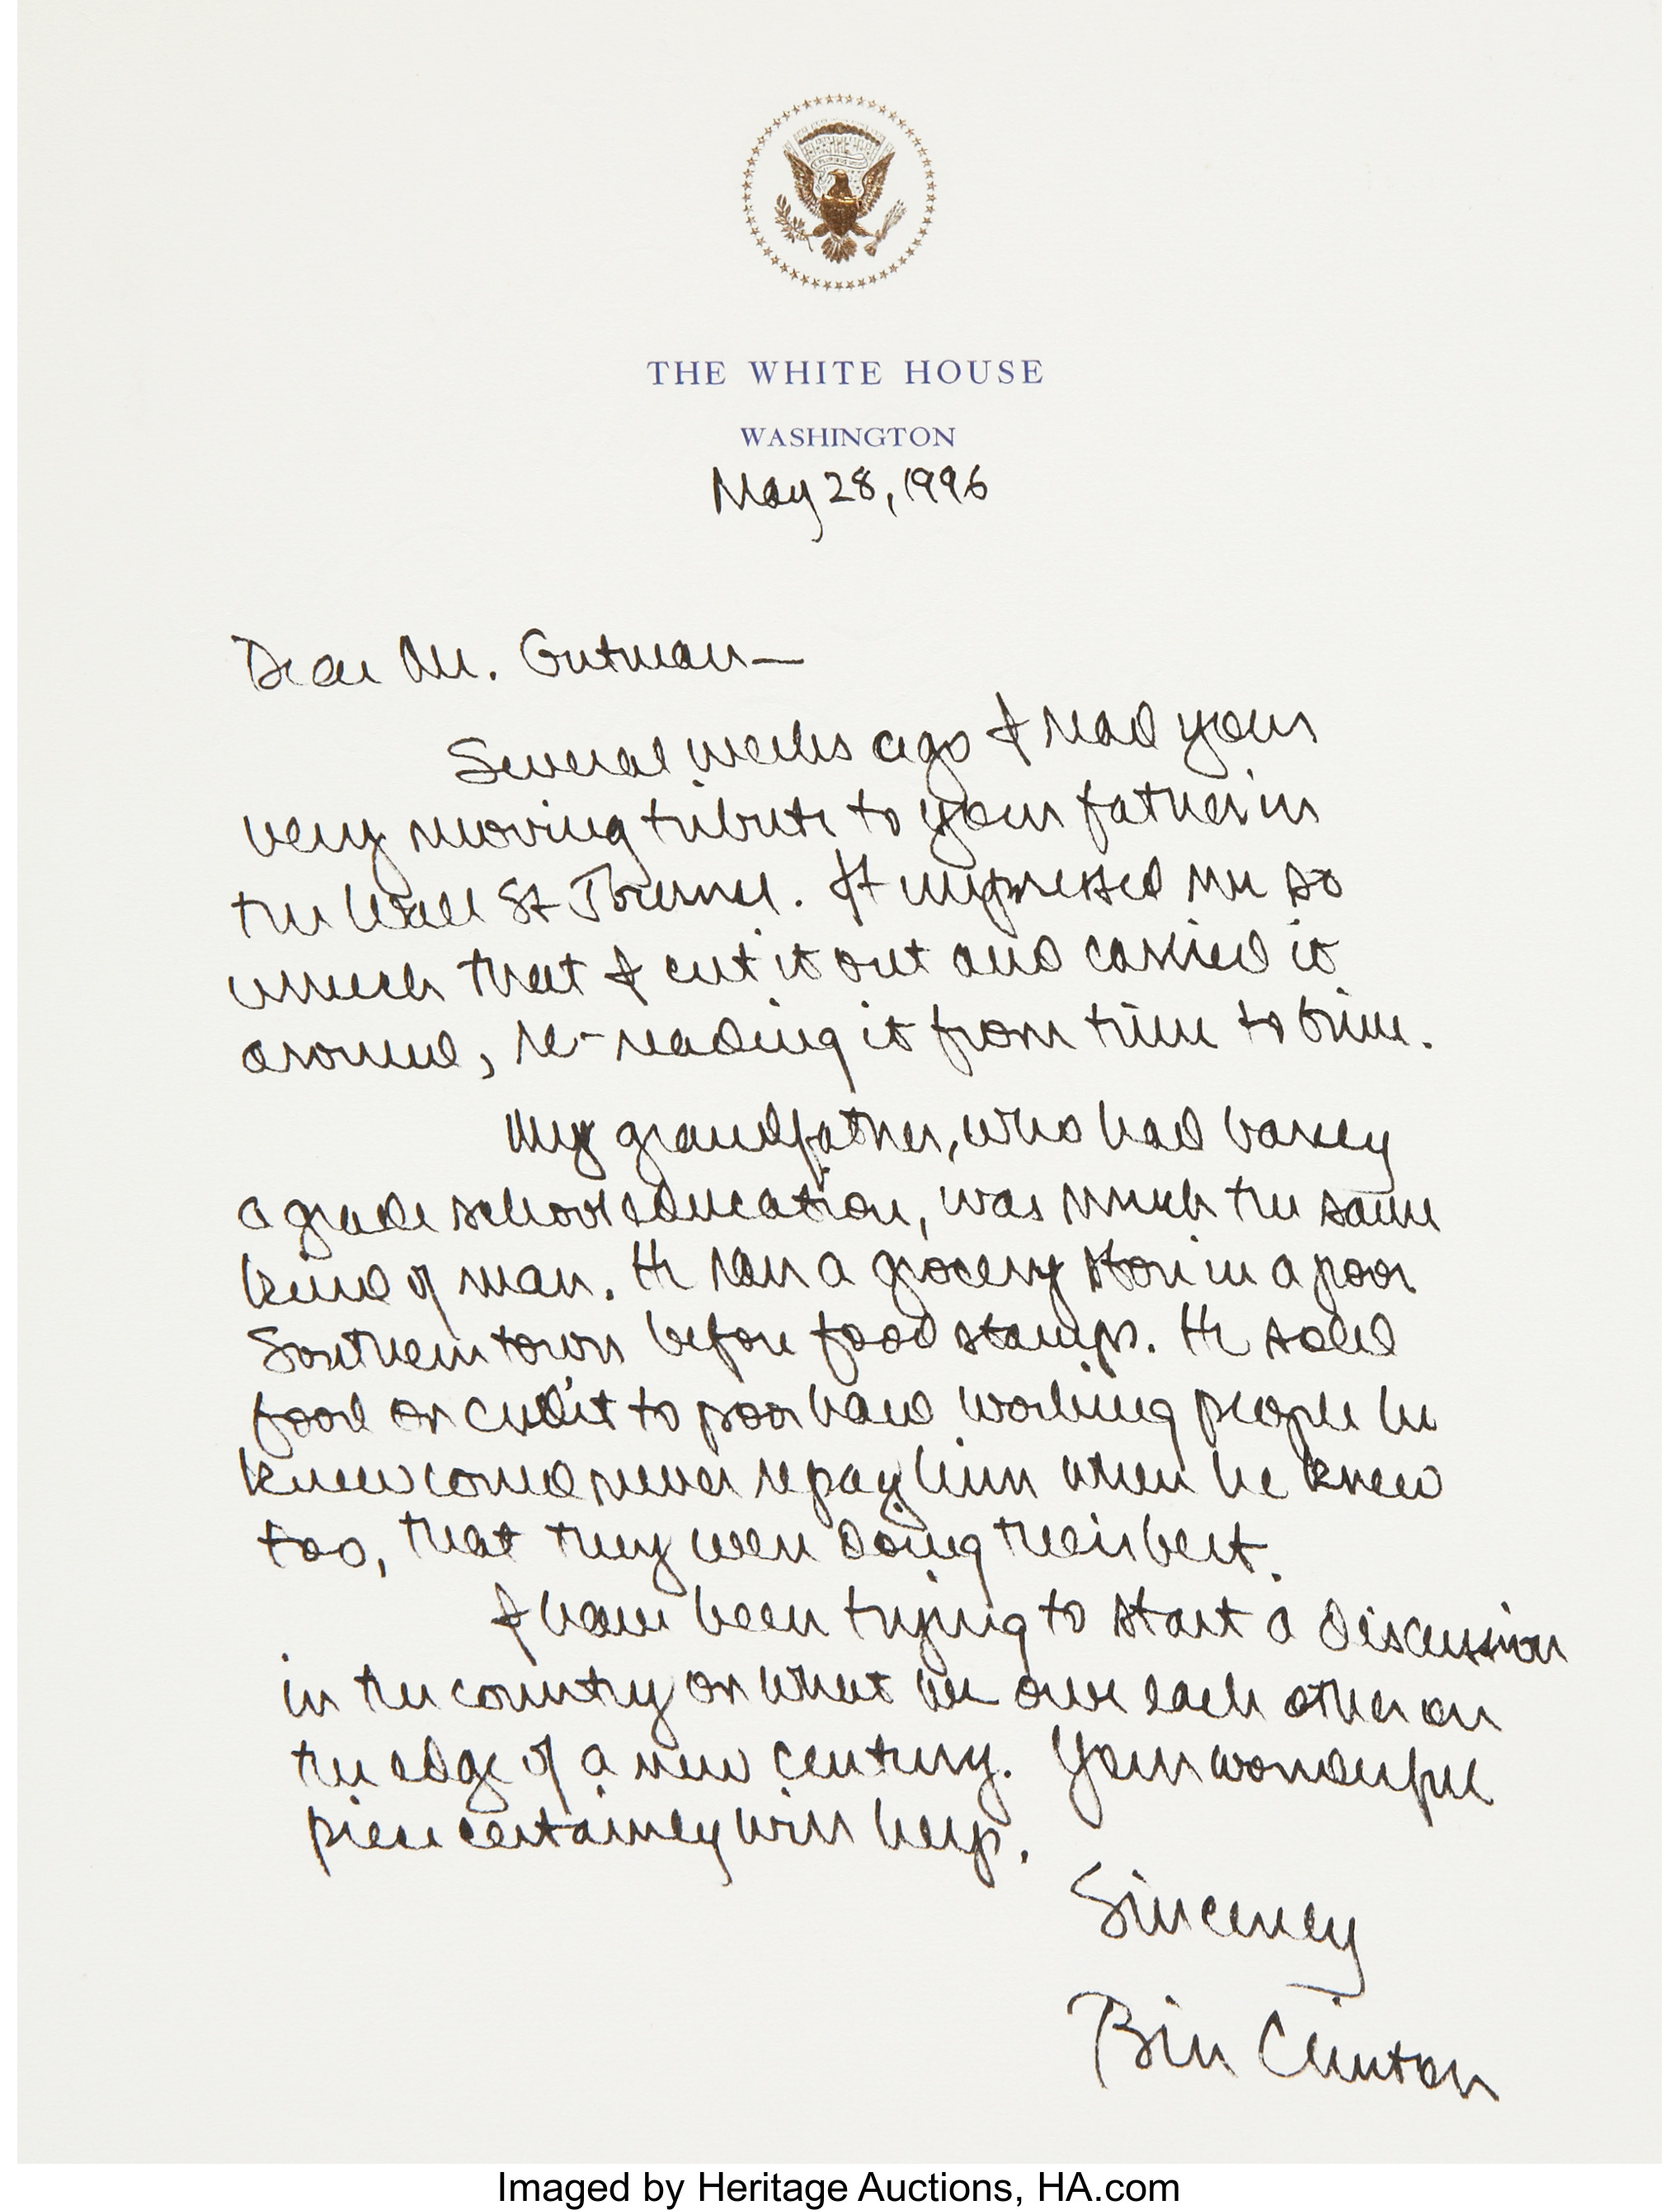 THE WHITE HOUSE
WASHINGTON
May 28, 1996
Dear Mr. Gutman—
Several weeks ago I read your
very moving tribute to your father in
the Wall St Journal. It impressed me so
much that I cut it out and carried it
around, re-reading it from time to time.
My grandfather, who had barely
a grade school education, was much the same
kind of man. He ran a grocery store in a poor
Southern town before food stamps. He sold
food on credit to poor hard working people he
knew could never repay him when he knew
too, that they were doing their best.
I have been trying to start a discussion
in the country on what we owe each other on
the edge of a new century. Your wonderful
piece certainly will help.
Sincerely
Bill Clinton
Imaged by Heritage Auctions, HA.com